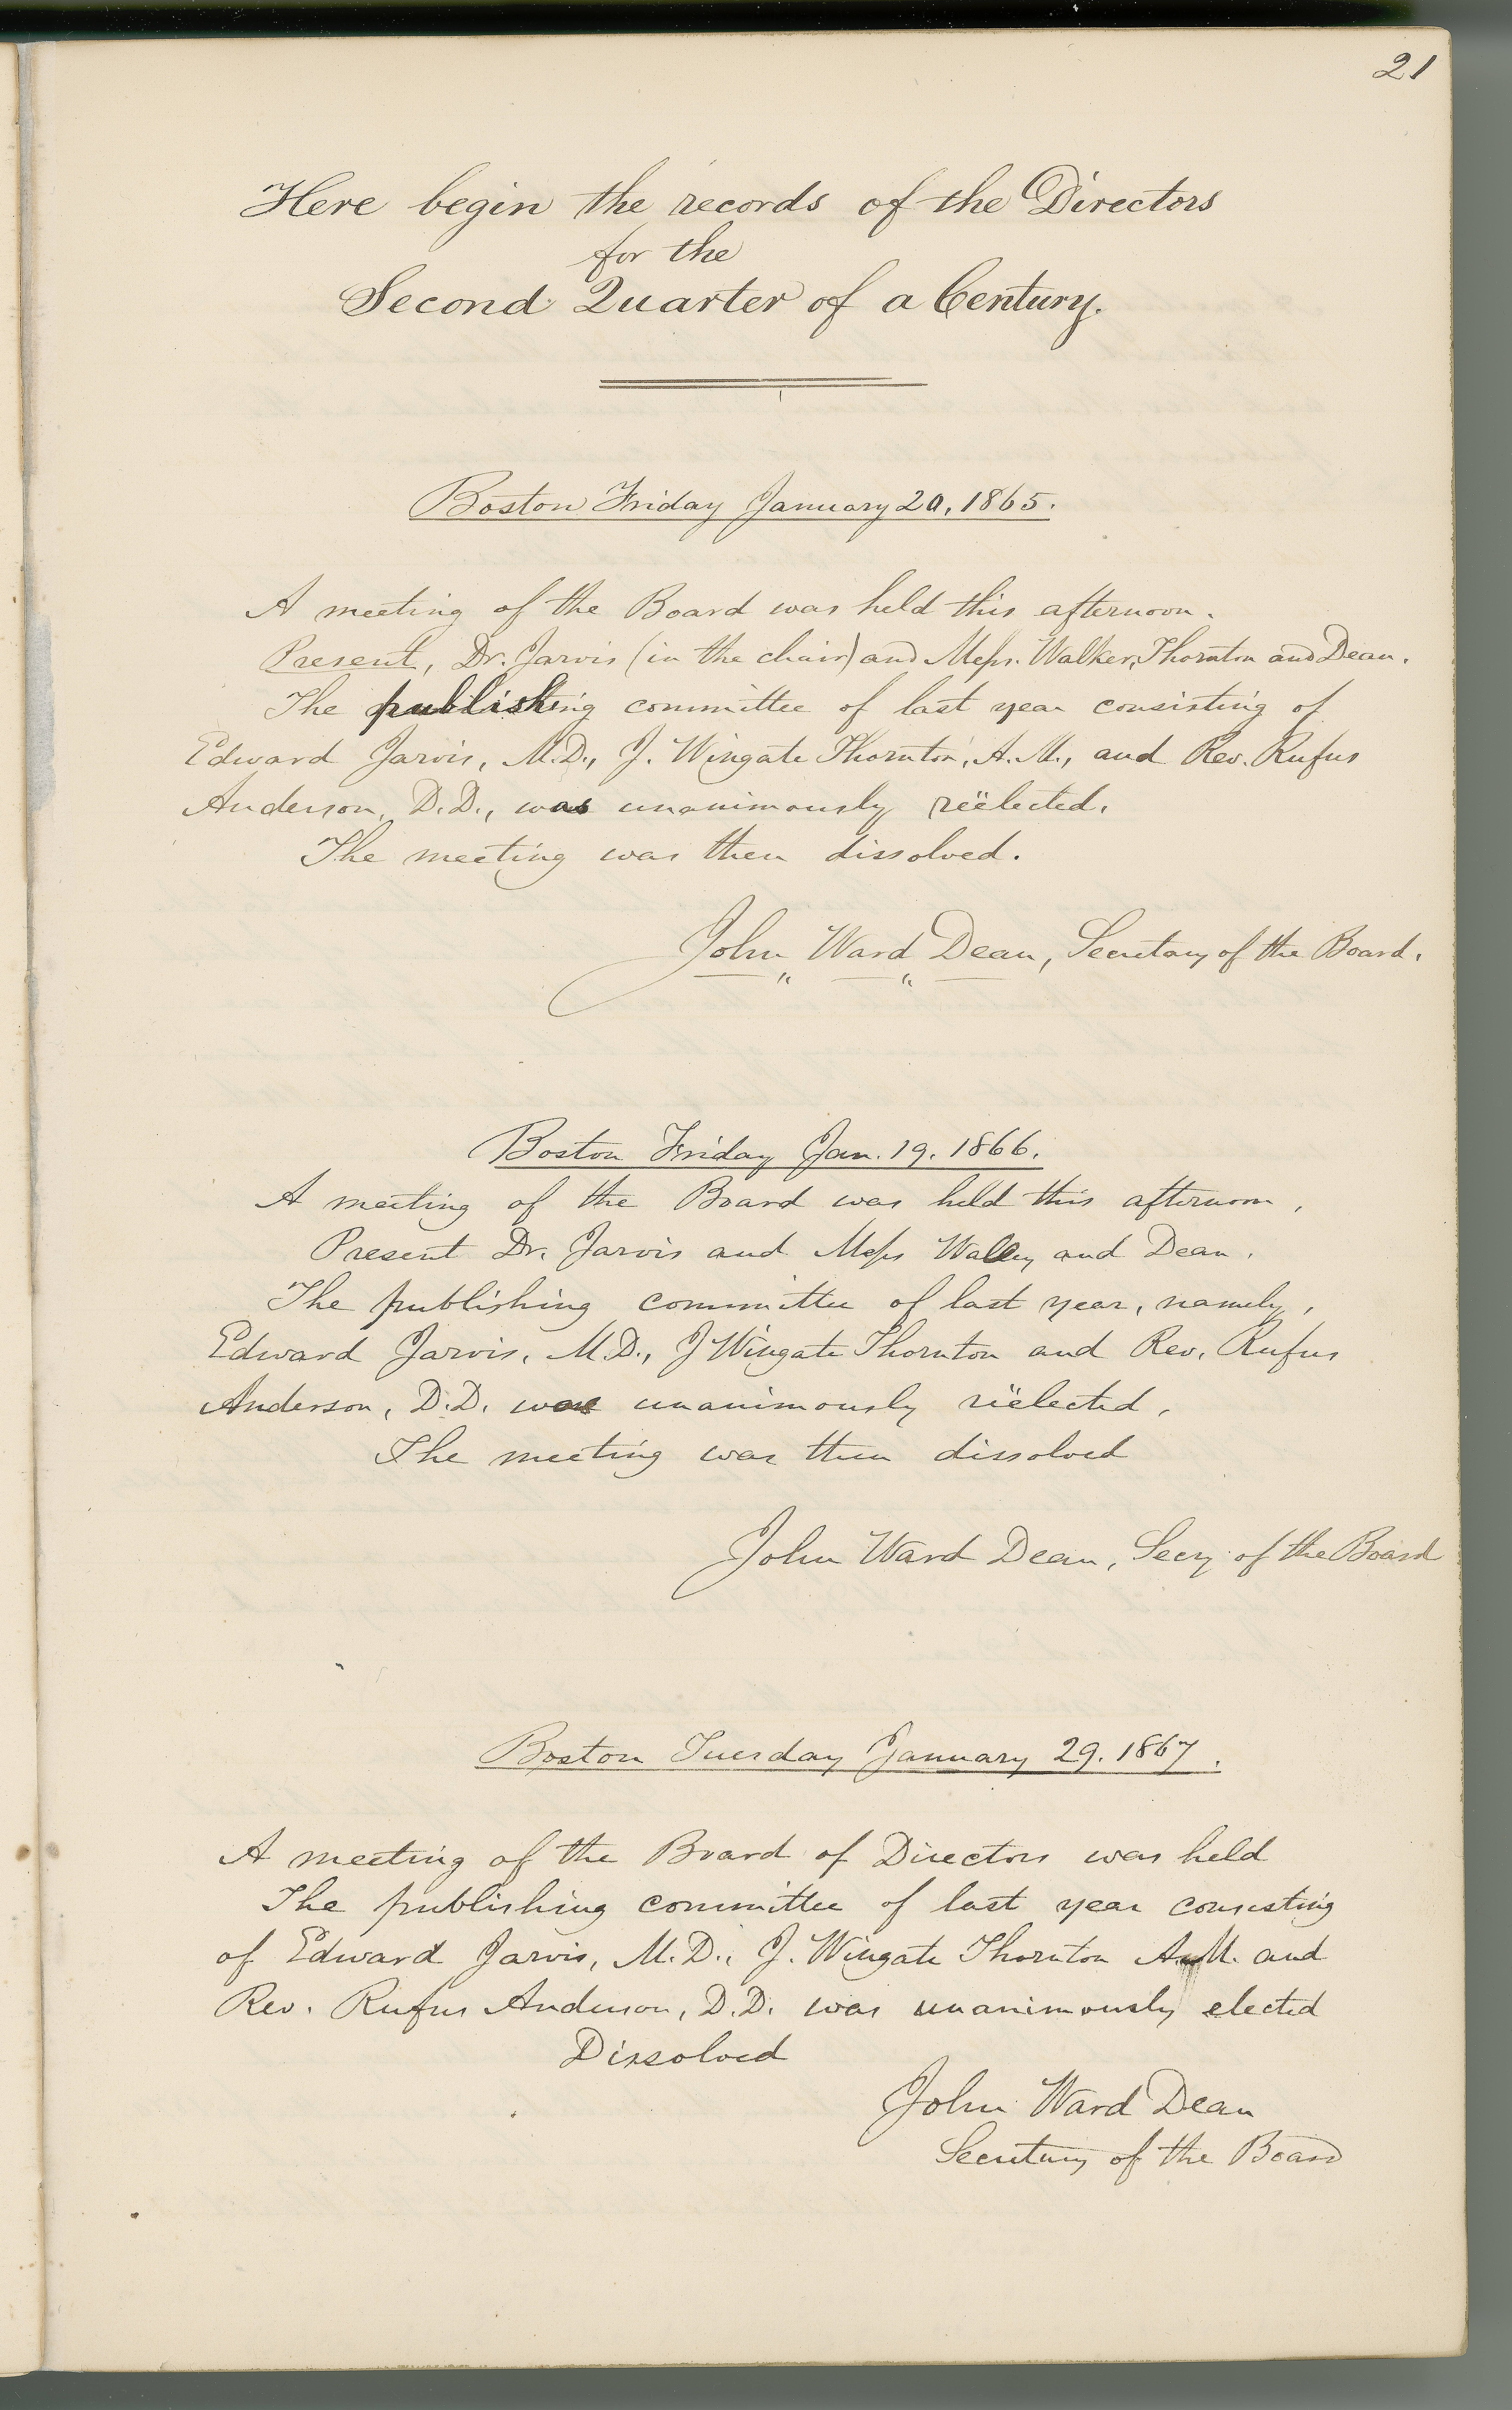 21
Here begin the records of the Directors
for the
Second Quarter of a Century.
Boston Friday January 20, 1865.
A meeting of the Board was held this afternoon.
Present, Dr. Jarvis (in the chair) and Messrs. Walker, Thornton and Dean.
The publishing committee of last year consisting of
Edward Jarvis, M.D., J. Wingate Thornton, A.M., and Rev. Rufus
Anderson, D.D., was unanimously reëlected.
The meeting was then dissolved.
John Ward Dean, Secretary of the Board.
Boston Friday Jan. 19. 1866.
A meeting of the Board was held this afternoon,
Present Dr. Jarvis and Messrs and Dean.
The publishing committee of last year, namely,
Edward Jarvis, M.D., J Wingate Thornton and Rev. Rufus
Anderson, D.D. was unanimously reëlected,
The meeting was then dissolved
John Ward Dean, Secy of the Board
Boston Tuesday January 29. 1867.
A meeting of the Board of Directors was held
The publishing committee of last year consisting
of Edward Jarvis, M.D., J. Wingate Thornton A.M. and
Rev. Rufus Anderson, D.D. was unanimously elected
Dissolved
John Ward Dean
Secretary of the Board